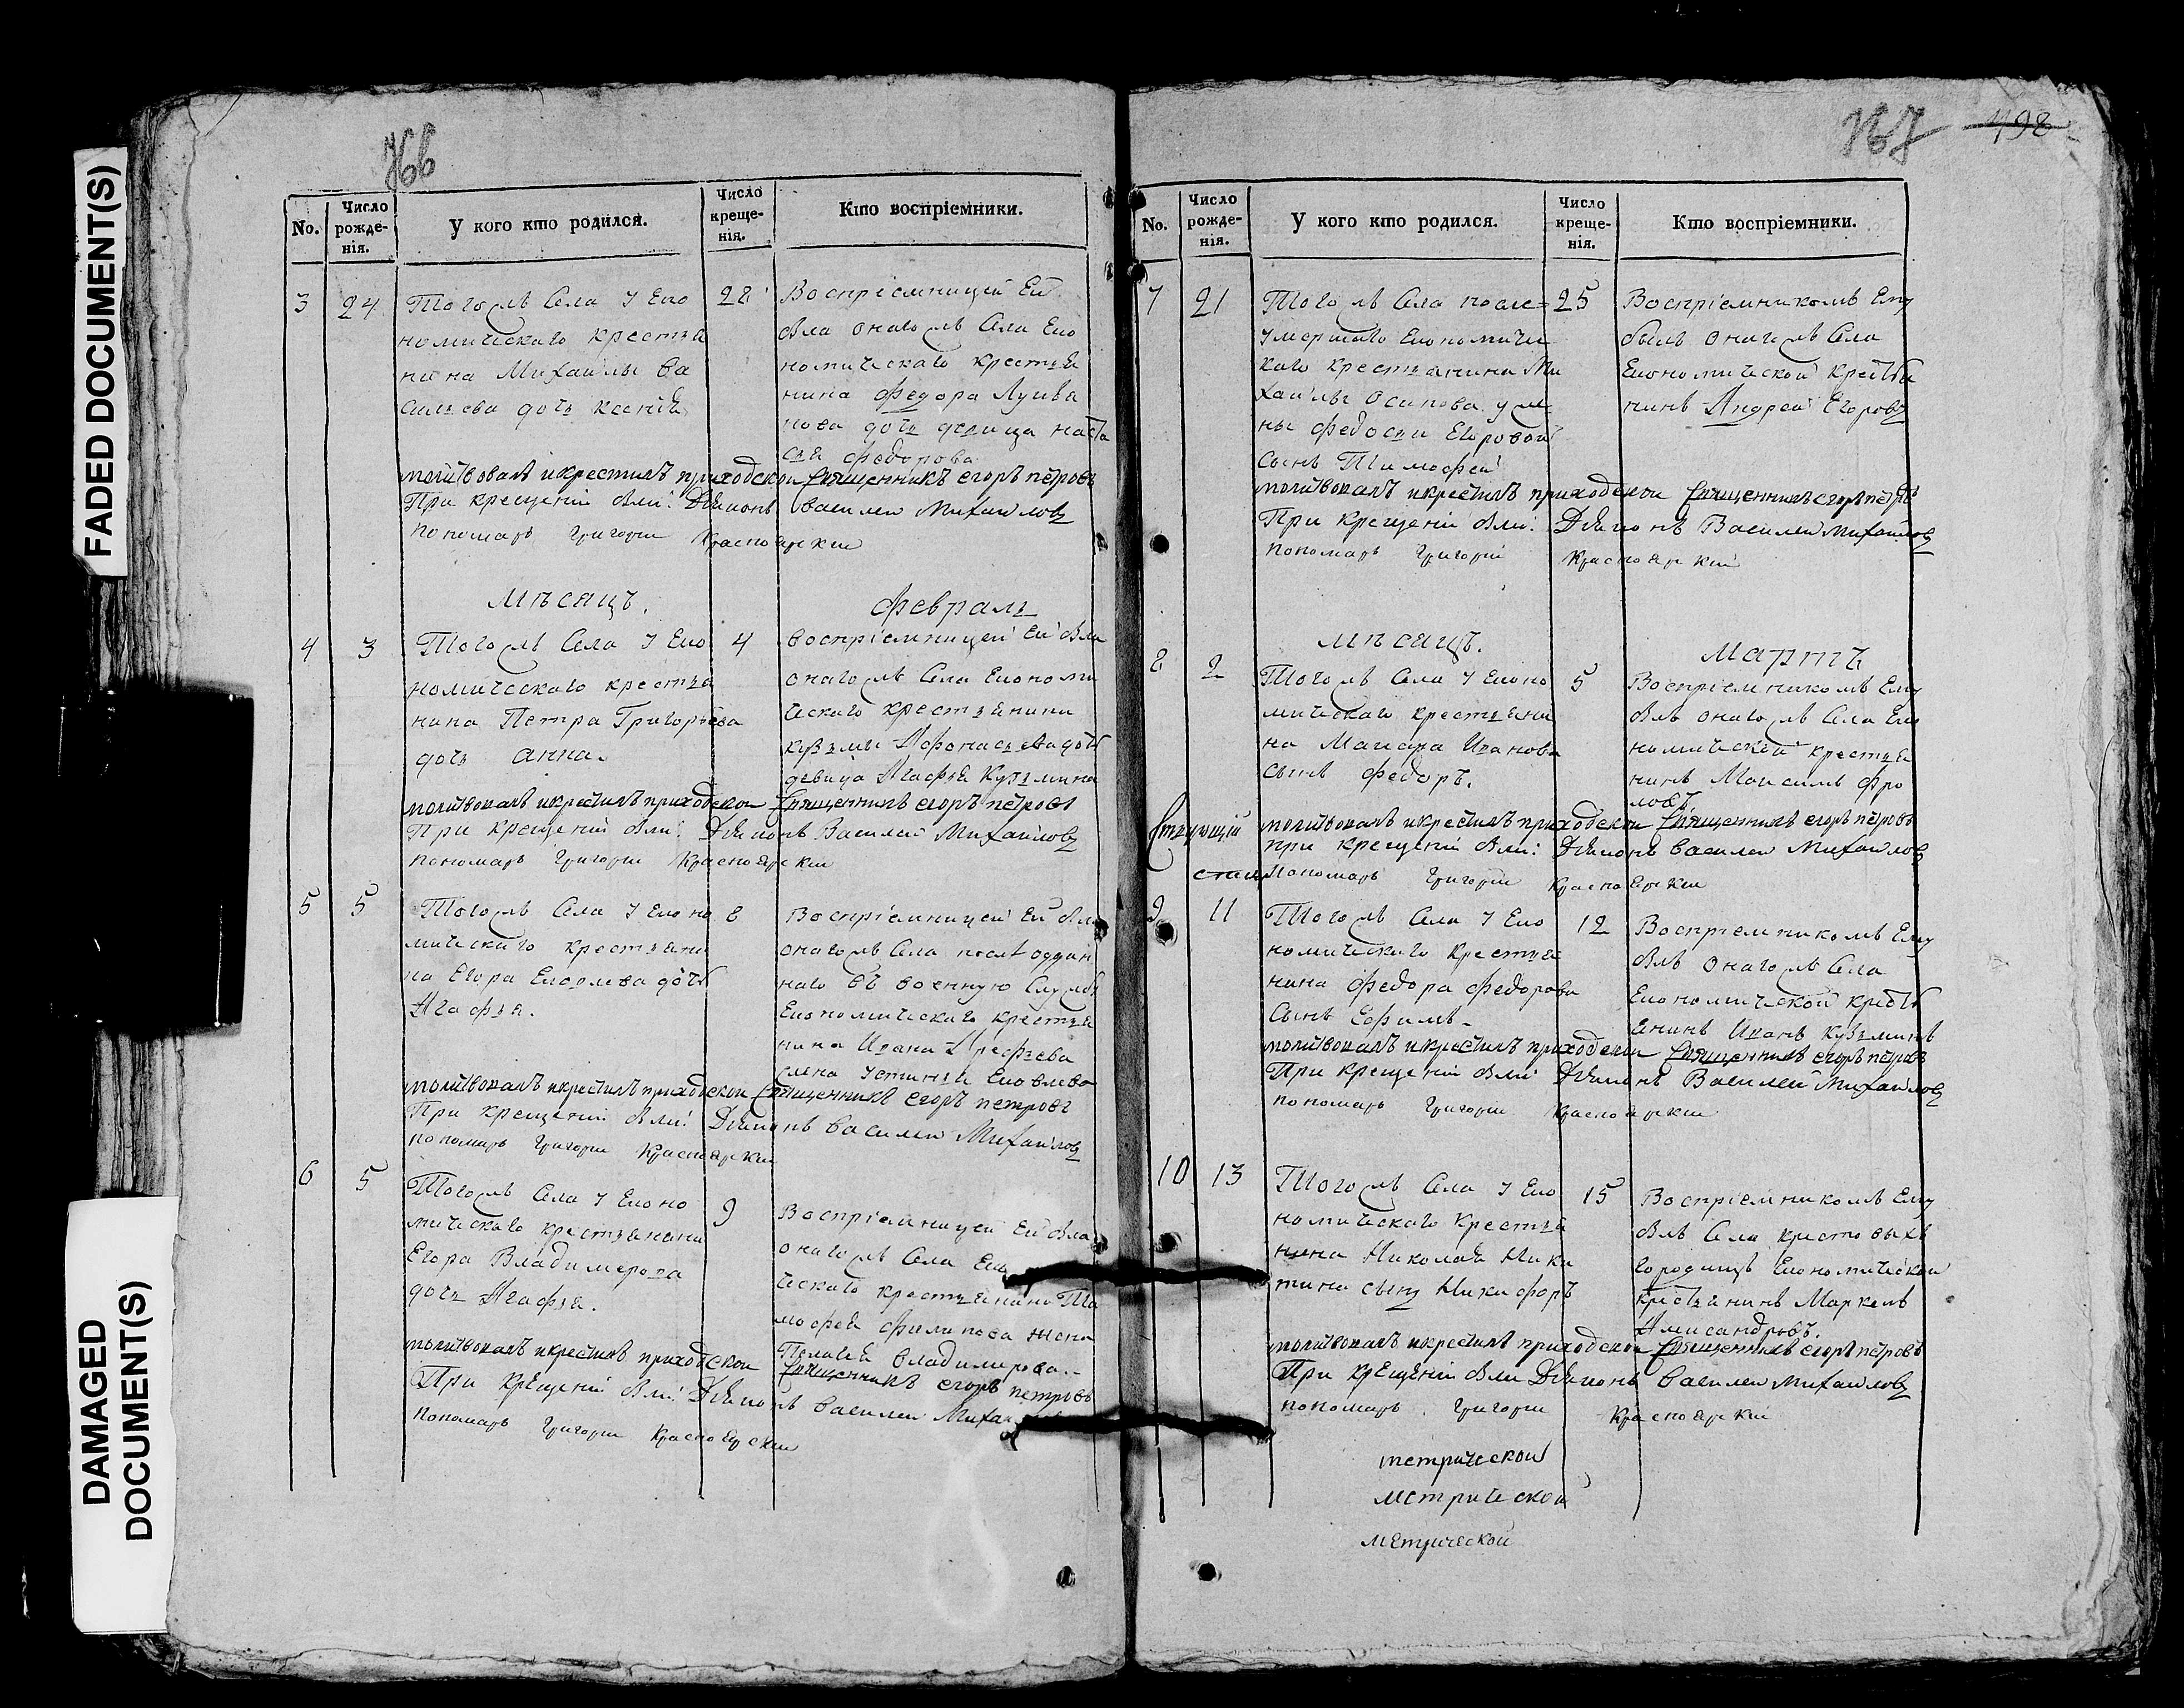 FADED DOCUMENT(S)
DAMAGED
DOCUMENT(S)
No.
Число рожденія.
У кого кто родился.
Число крещенія.
Кто воспріемники.
3 24
Тогожъ Села у Еко
номическаго крестья
нина Михаилы Ва
сильева дочь Ксенія
28
Воспріемницей Ей
бла онагожъ Села Еко
номическаго крестья
нина Федора Лукья
нова дочь девица наста
сья Федорова
молитвовалъ и крестилъ приходскои Священникъ егоръ петровъ
При крещеніи бли: Дьяконъ Василеи Михаиловъ
пономарь Григории Красноярскии
Мѣсяцъ. Февраль
4 3
Тогожъ Села у Еко
номическаго крестья
нина Петра Григорьева
дочь Анна.
4
Воспріемницей Ей бла
онагожъ Села Економи
ческаго крестьянина
Кузьмы Афонасьева дочь
девица Агафья Кузьмина
молитвовалъ и крестилъ приходскои Священникъ егоръ петровъ
При крещеніи бли: Дьяконъ Василеи Михаиловъ
пономарь Григории Красноярскии
5 5
Тогожъ Села у Еконо
мическаго крестьяни
на Егора Яковлева дочь
Агафья.
8
Воспріемницей Ей бла
онагожъ Села после отдан
наго въ военную Службу
Економическаго крестья
нина Ивана Арефьева
жена Устинья Яковлева
молитвовалъ и крестилъ приходскои Священникъ егоръ петровъ
При крещеніи бли: Дьяконъ Василеи Михаиловъ
пономарь Григории Красноярскии
6 5
Тогожъ Села у Еконо
мическаго крестьянина
Егора Владимерова
дочь Агафья.
9
Воспріемницей Ей бла
онагожъ Села Еко
ческаго крестьянина Ти
мофея Филипова жена
Пелагея Владимирова.
молитвовалъ и крестилъ приходскои Священникъ егоръ петровъ
При крещеніи бли: Дьяконъ Василеи
пономарь Григории Красноярскии
167 498
No.
Число рожденія.
У кого кто родился.
Число крещенія.
Кто воспріемники.
7 21
Тогожъ Села после
умершаго Економичес
каго крестьянина Ми
хайлы Осипова у же
ны Федосьи Егоровой
сынъ Тимофей
25
Воспріемникомъ Ему
былъ онагожъ Села
Економической крестья
нинъ Андрей Егоровъ
молитвовалъ и крестилъ приходскои Священникъ егоръ петровъ
При крещеніи бли: Дьяконъ Василеи Михаиловъ
пономарь Григорій Красноярскій
Мѣсяцъ. Мартъ
8 2
Тогожъ Села у Еконо
мическаго крестьяни
на Макара Иванова
сынъ Федоръ.
5
Воспріемникомъ Ему
блъ онагожъ Села Еко
номической крестья
нинъ Максимъ Фро
ловъ
молитвовалъ и крестилъ приходскои Священникъ егоръ петровъ
при крещеніи бли: Дьяконъ Василеи Михаиловъ
Пономарь Григории Красноярскии
9 11
Тогожъ Села у Еко
номическаго крестья
нина Федора Федорова
Сынъ Ефимъ
12
Воспріемникомъ Ему
блъ онагожъ Села
Економической кресть
янинъ Иванъ Кузьминъ
молитвовалъ и крестилъ приходскои Священникъ егоръ петровъ
При крещеніи бли Дьяконъ Василей Михаиловъ
пономарь Григории Красноярскии
10 13
Тогожъ Села у Еко
номическаго крестья
нина Николая Ники
тина сынъ Никифоръ
15
Воспріемникомъ Ему
блъ Села крестовыхъ
Городищъ Економической
крестьянинъ Маркелъ
Александровъ.
молитвовалъ и крестилъ приходскои Священникъ егоръ петровъ
При крещеніи бли Дьяконъ Василеи Михаиловъ
пономарь Григории Красноярскии
метрическои
метрической
метрической